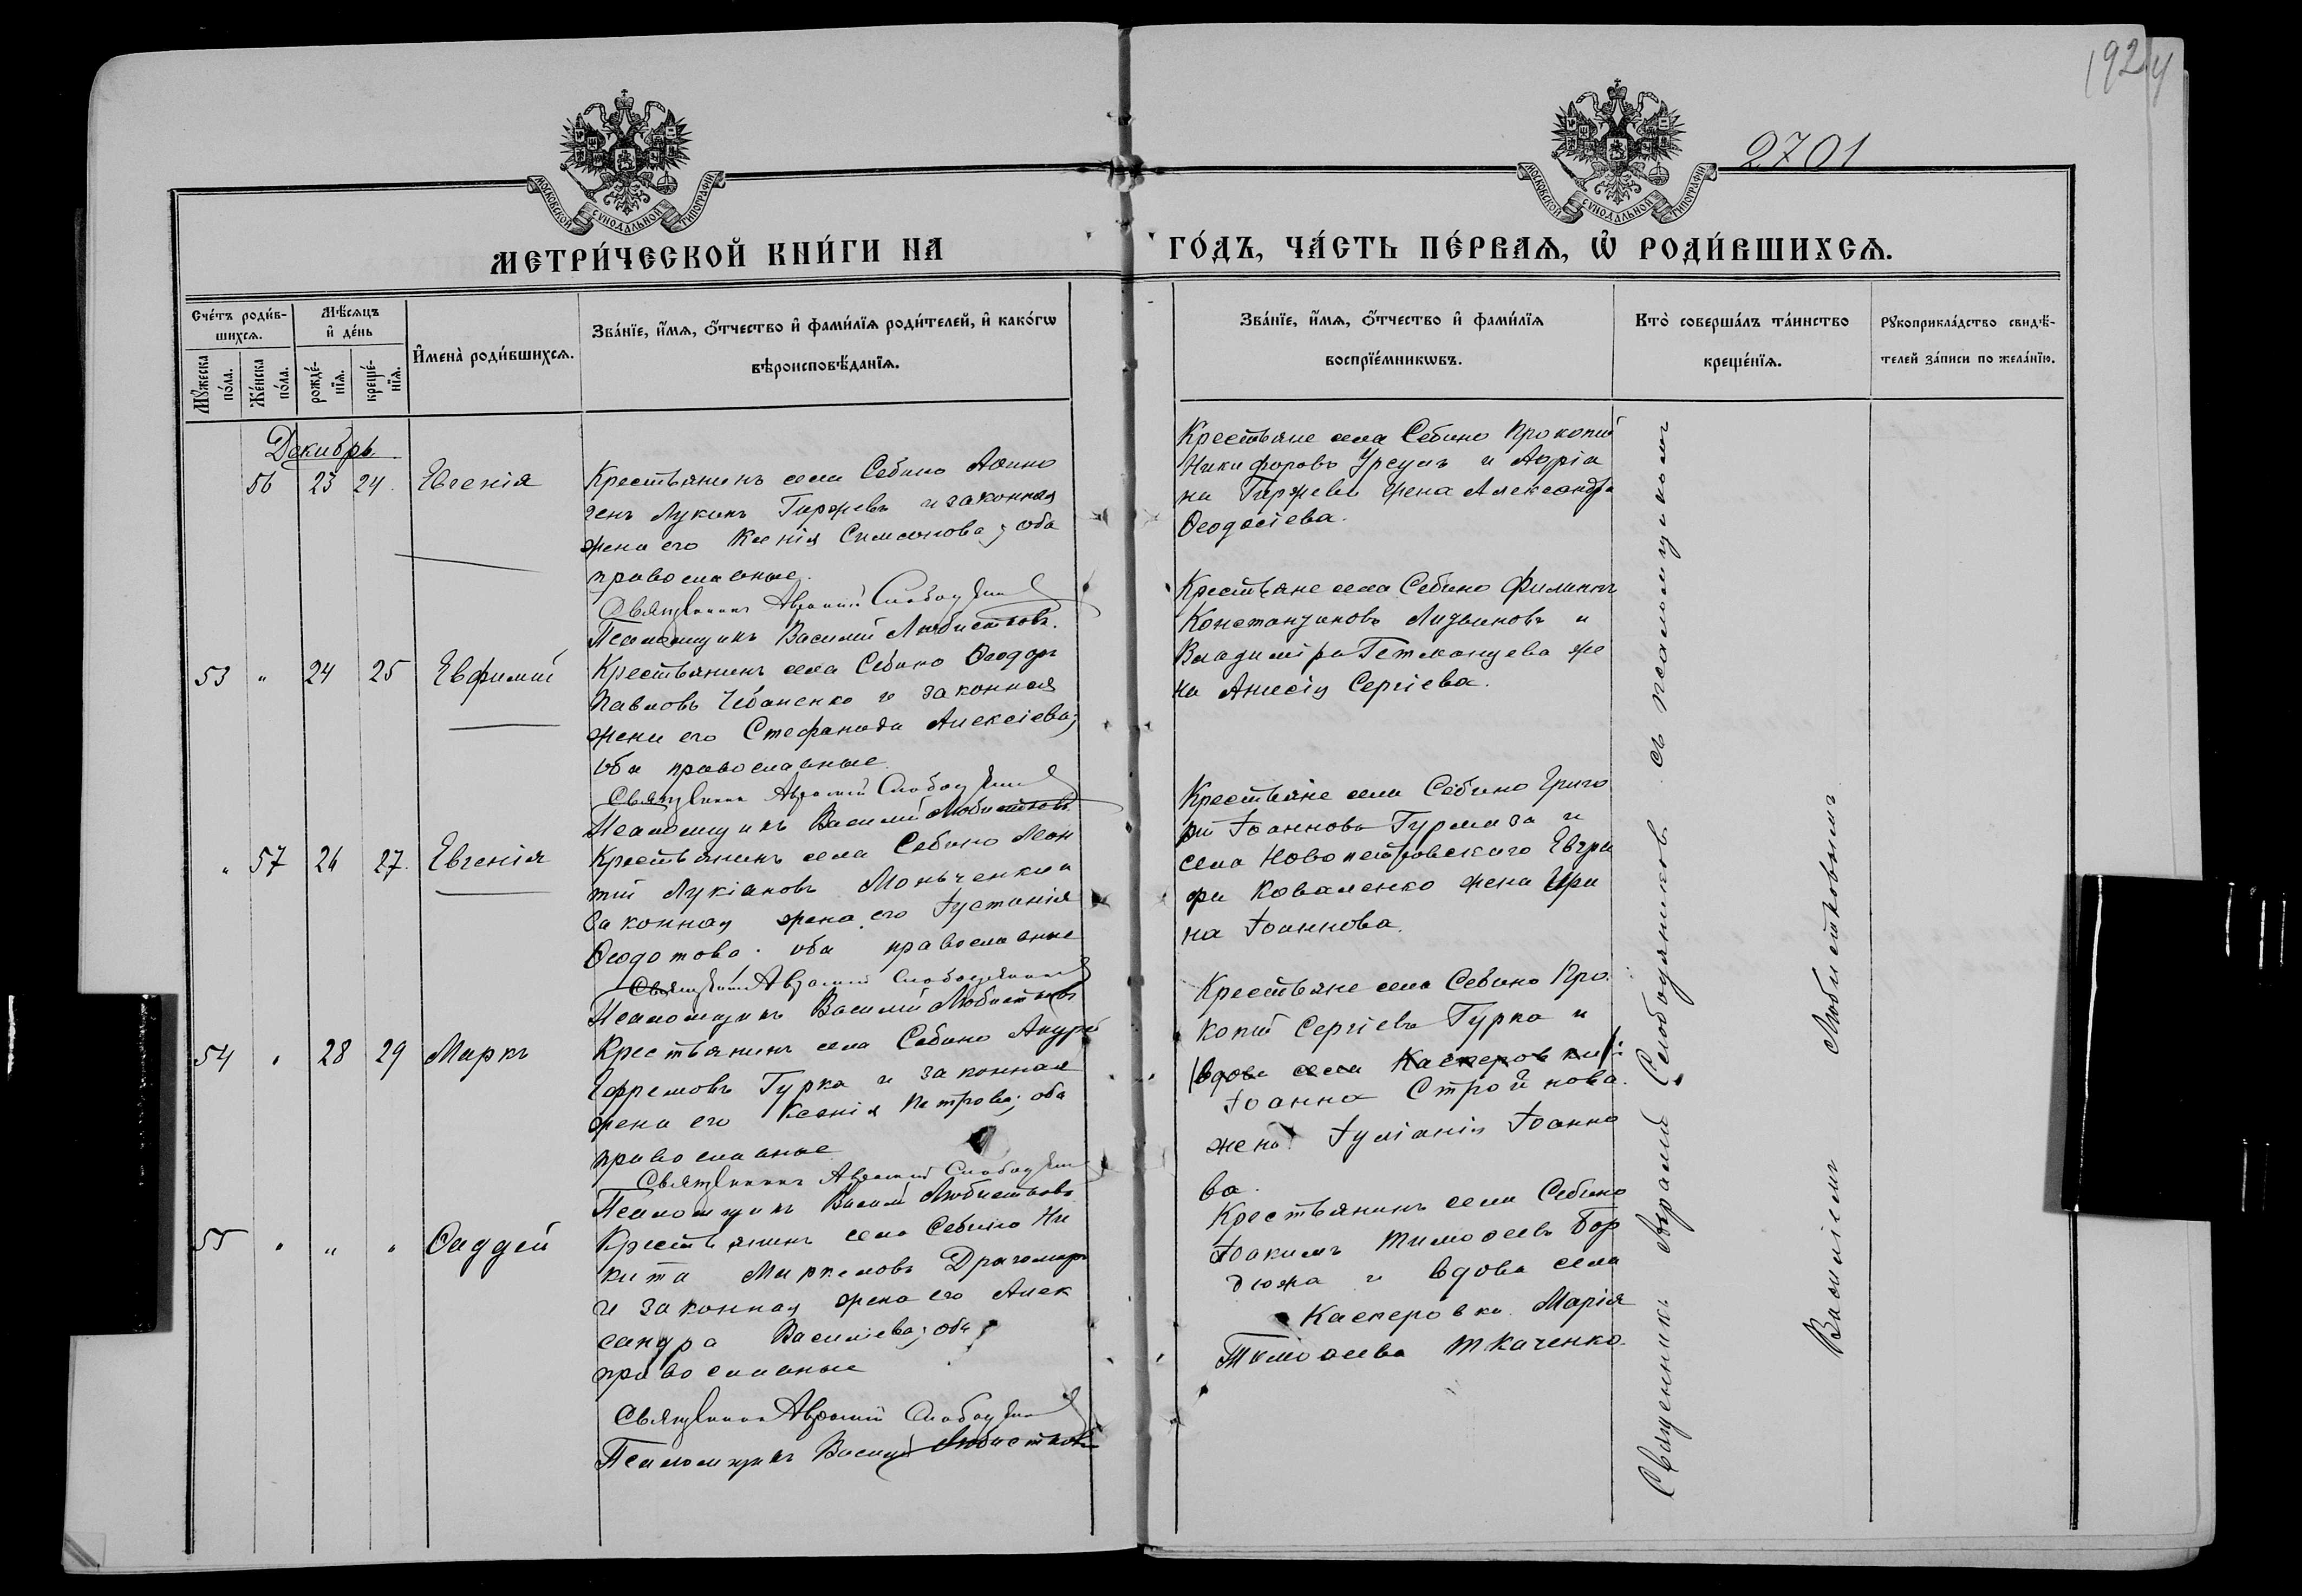 1924
2701
МОСКОВСКОЙ СѴНОДАЛЬНОЙ ТИПОГРАФІИ
МОСКОВСКОЙ СѴНОДАЛЬНОЙ ТИПОГРАФІИ
МЕТРИ́ЧЕСКОЙ КНИ́ГИ НА
ГО́ДЪ, ЧА́СТЬ ПЕ́РВАѦ, Ѿ РОДИ́ВШИХСѦ.
Сче́тъ роди́в-
шихсѧ.
Мꙋ́жеска
по́ла.
Же́нска
по́ла.
Мѣ́сѧцъ
и҆ де́нь
рожде́-
нїѧ.
креще́-
нїѧ.
И҆мена̀ роди́вшихсѧ.
Зва́нїе, и҆́мѧ, ѻ҆́тчество и҆ фами́лїѧ роди́телей, и҆ како́гѡ
вѣроисповѣ́данїѧ.
Зва́нїе, и҆́мѧ, ѻ҆́тчество и҆ фами́лїѧ
воспрїе́мникѡвъ.
Кто̀ соверша́лъ та́инство
креще́нїѧ.
Рꙋкоприкла́дство свидѣ́-
телей за́писи по жела́нїю.
Декабрь
56 23 24 Евгенія
Крестьянинъ села Себино Аѳино
генъ Лукинъ Гиржевъ и законная
жена его Ксенія Симеонова; оба
православные.
Священникъ Аврамій Слободяник
Псаломщикъ Василій Любистковъ.
Крестьяне села Себино Прокопій
Никифоровъ Урсулъ и Адріа
на Гиржева жена Александра
Ѳеодосіева.
53 " 24 25 Евфимій
Крестьянинъ села Себино Ѳеодоръ
Павловъ Чебаненко и законная
жена его Стефанида Алексіева;
оба православные.
Священникъ Аврамій Слободяник
Псаломщикъ Василій Любистковъ
Крестьяне села Себино Филиппъ
Константиновъ Лизвиновъ и
Владиміра Гетманцева же
на Анисія Сергіева.
" 57 26 27 Евгенія
Крестьянинъ села Себино Леон
тій Лукіановъ Моньченко и
законная жена его Іустинія
Ѳеодотова; оба православные
Священникъ Аврамій Слободяник
Псаломщикъ Василій Любистковъ
Крестьяне села Себино Григо
рій Іоанновъ Гурмаза и
села Новопетровскаго Евгра
фа Коваленко жена Ири
на Іоаннова.
54 " 28 29 Маркъ
Крестьянинъ села Себино Андрей
Ефремовъ Гурка и законная
жена его Ксенія Петрова; оба
православные
Священникъ Аврамій Слободяник
Псаломщикъ Василій Любистковъ
Крестьяне села Себино Про
копій Сергіевъ Гурка и
(вдова села Касперовки)
Іоанна Стройнова
жена Іуліанія Іоанно
ва.
55 " " " Ѳаддей
Крестьянинъ села Себино Ни
кита Маркеловъ Драгомиръ
и законная жена его Алек
сандра Василіева; оба
православные
Священникъ Аврамій Слободяник
Псаломщикъ Василій Любистковъ
Крестьянинъ села Себино
Іоакимъ Тимоѳеевъ Бор
дюжа и вдова села
Касперовки Марія
Тимоѳеева Ткаченко.
Священникъ Аврамій Слободяниковъ съ псаломщикомъ
Василіемъ Любистковымъ